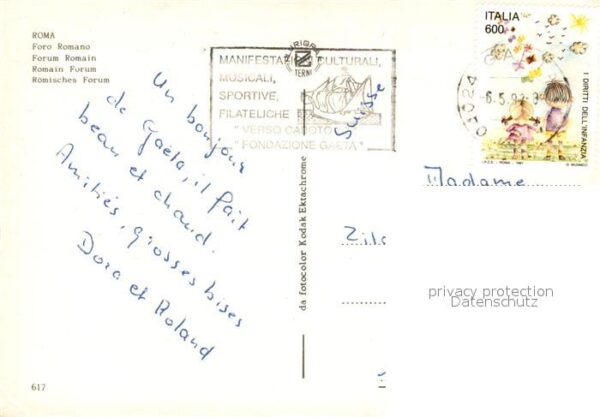 ROMA
Foro Romano
Forum Romain
Romain Forum
Römisches Forum
TERNI
MANIFESTAZIONI CULTURALI,
MUSICALI,
SPORTIVE,
FILATELICHE
"VERSO CABOTO"
"FONDAZIONE GAETA"
ITALIA
600
I DIRITTI DELL'INFANZIA
I.P.Z.S. - ROMA - 1991
04024
6.5.92
Un bonjour
de Gaëta, il fait
beau et chaud.
Amitiés, grosses bises
Dora et Roland
Suisse
Madame
da fotocolor Kodak Ektachrome
privacy protection
Datenschutz
617